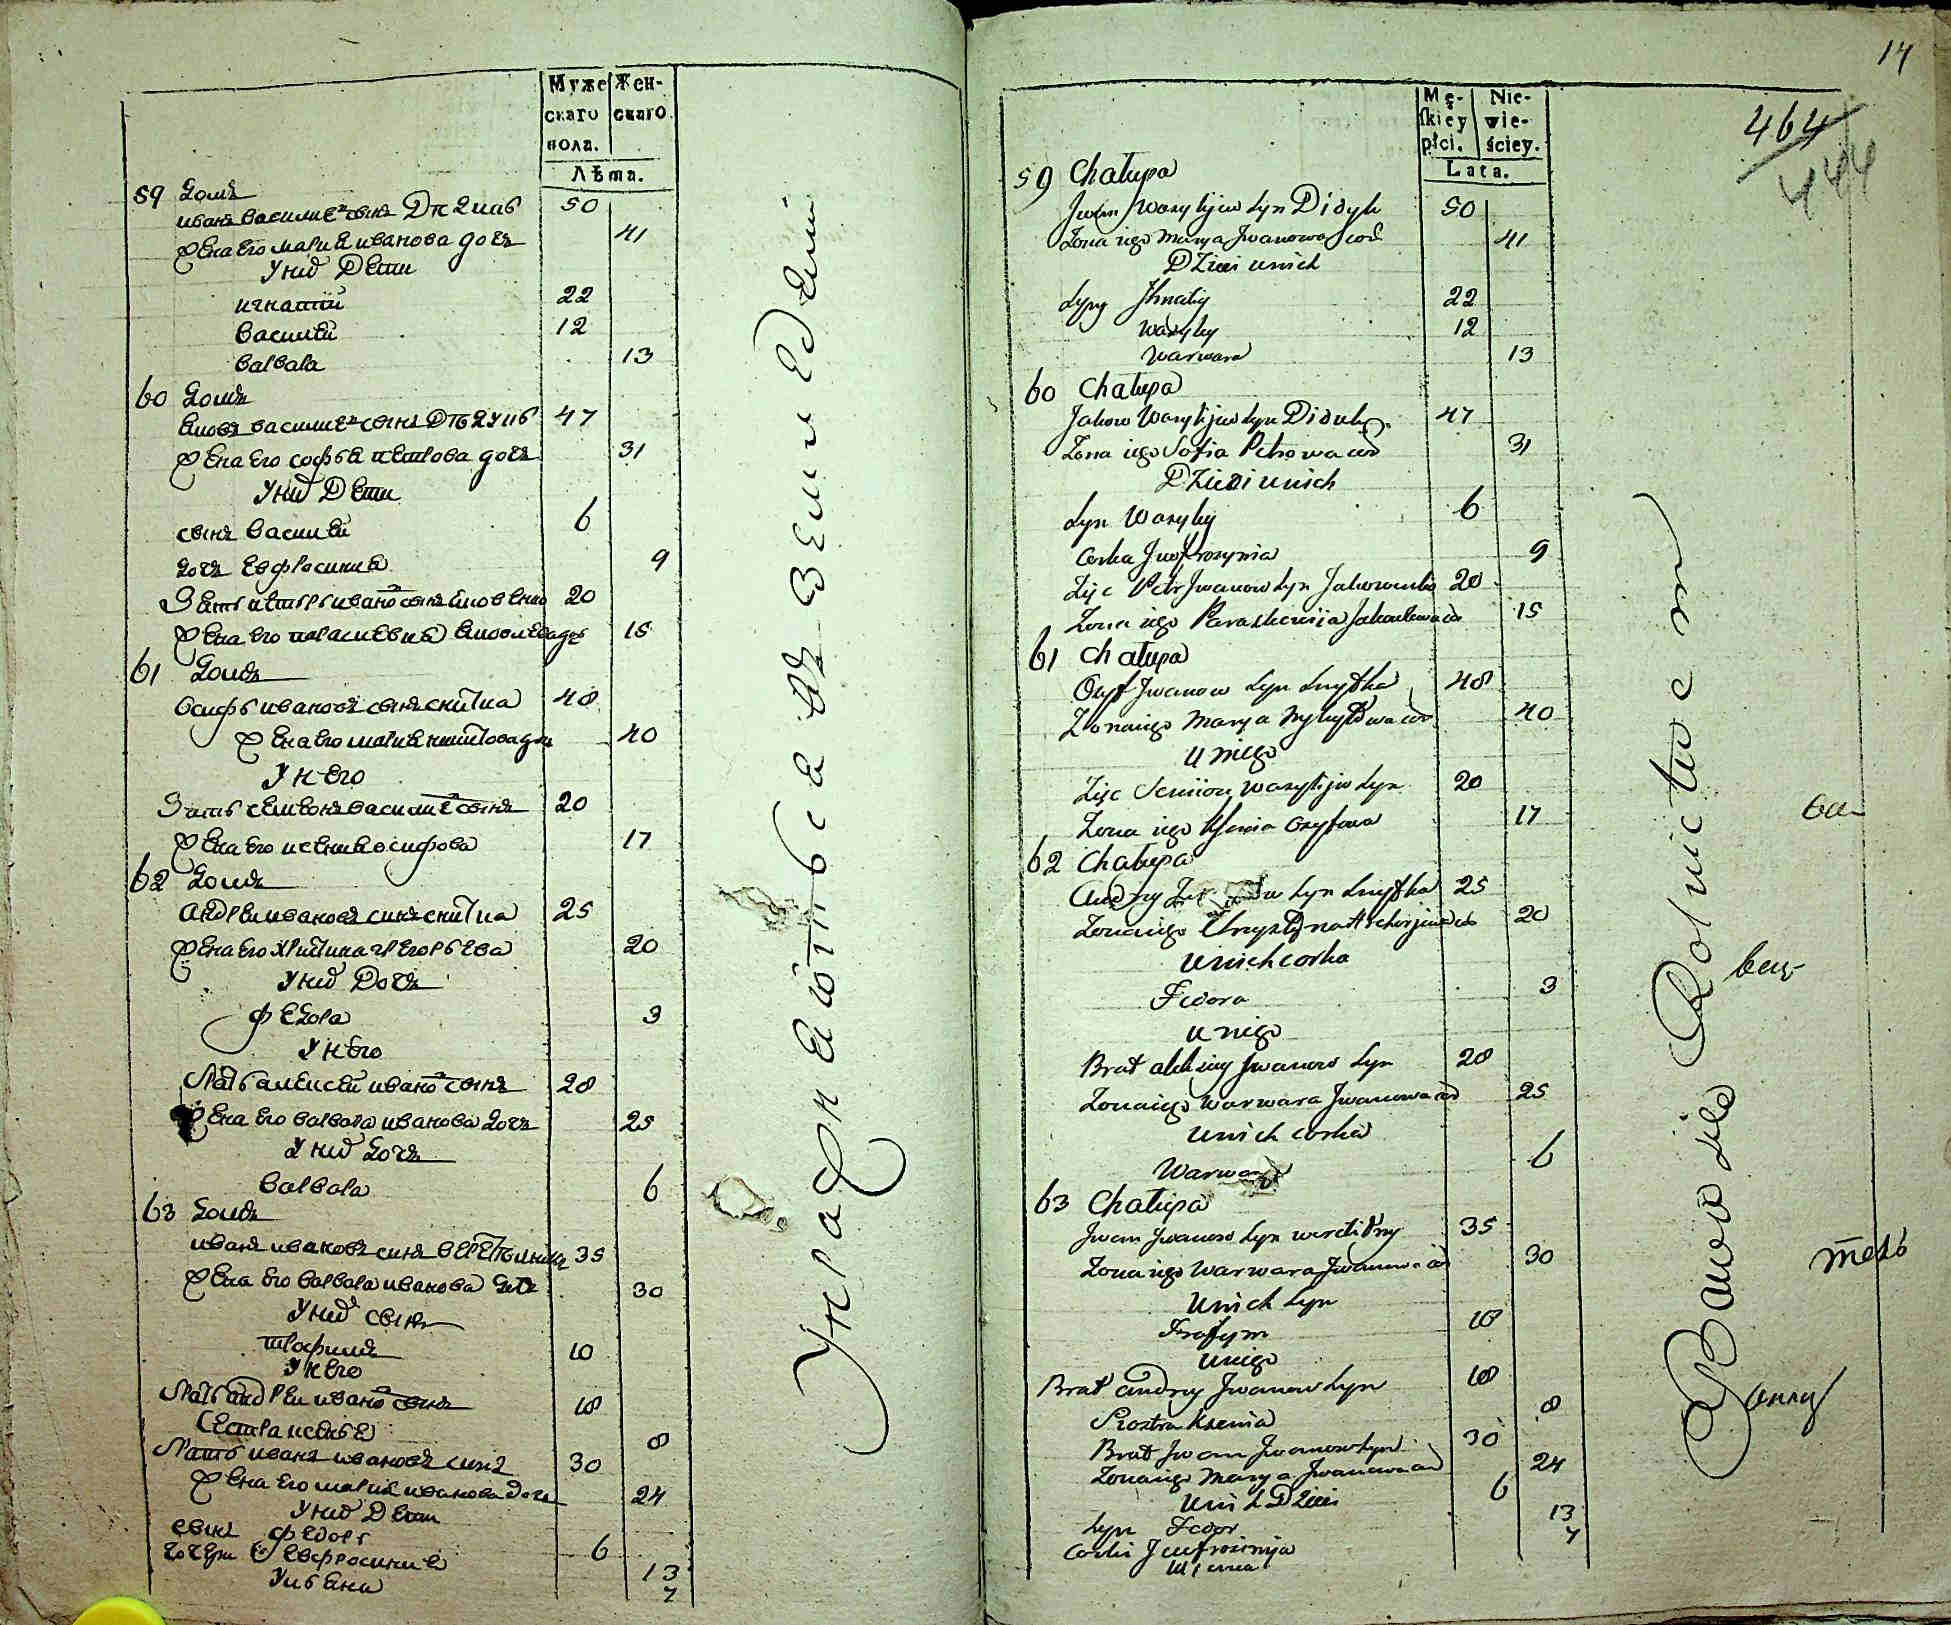 Муже Жен-
скаго скаго.
пола.
Лѣта.
59 Домъ
иванъ василиевъ сынъ Дѣдикъ 50
Жена его мариа иванова дочь 41
У них Дети
игнатий 22
василий 12
варвара 13
60 Домъ
яковъ василиевъ сынъ Дѣдикъ 47
Жена его софиа петрова дочь 31
У них Дети
сынъ василий 6
дочь Евфросиниа 9
Зять петръ иванов сынъ 20
Жена его параскевиа 15
61 Домъ
осифъ ивановъ сынъ снитка 48
Жена его мариа никитова дочь 40
У него
Зять семионъ василиев сынъ 20
Жена его ксениа осифова 17
62 Домъ
андрей ивановъ синъ снитка 25
Жена его христина григорьева 20
У них Дочь
федора 3
У него
братъ алексей иванов сынъ 28
Жена его варвара иванова дочь 25
У них дочь
варвара 6
63 Домъ
иванъ ивановъ синъ 35
Жена его варвара иванова дочь 30
У них сынъ
трофимъ 10
У него
братъ андрей иванов сынъ 18
Сестра ксениа 8
братъ иванъ ивановъ синъ 30
Жена его мариа иванова дочь 24
У них Дети
сынъ федоръ 6
дочери Евфросиниа 13
Улиана 7
14
464
444
Mę- Nie-
skiey wie-
płci. ściey.
Lata.
59 Chałupa
Jwan Wasylijew syn Didyk 50
Zona iego Marya Jwanowa cor 41
Dzieci unich
syny Jhnatiy 22
Wasyly 12
Warwara 13
60 Chałupa
Jakow Wasylijew syn Diduk 47
Zona iego Sofia Petrowa cor 31
Dzieci unich
syn Wasyly 6
corka Jewfrosynia 9
Zięc Petr Jwanow syn Jakowenko 20
Zona iego Paraskewija Jakowlewa cor 15
61 Chałupa
Osyf Jwanow syn Snytka 48
Zona iego Marya Mykytowa cor 40
u niego
Zięc Semion Wasylijw syn 20
Zona iego Ksenia Osyfowa 17
62 Chałupa
Andry syn Snytka 25
Zona iego Chrystyna Hrehorjewa cor 20
unich corka
Fedora 3
u nigo
Brat Aleksiy Jwanow syn 28
Zona iego Warwara Jwanowa cor 25
unich corka
Warwara 6
63 Chałupa
Jwan Jwanow syn 35
Zona iego Warwara Jwanowa cor 30
unich syn
Trofym 10
unigo
Brat Andry Jwanow syn 18
Siostra Ksenia 8
Brat Jwan Jwanow syn 30
Zona iego Marya Jwanowa cor 24
Unich Dzieci 6
syn Fedor 13
corki Jewfrosinija 7
Bawi sie Rolnictwem